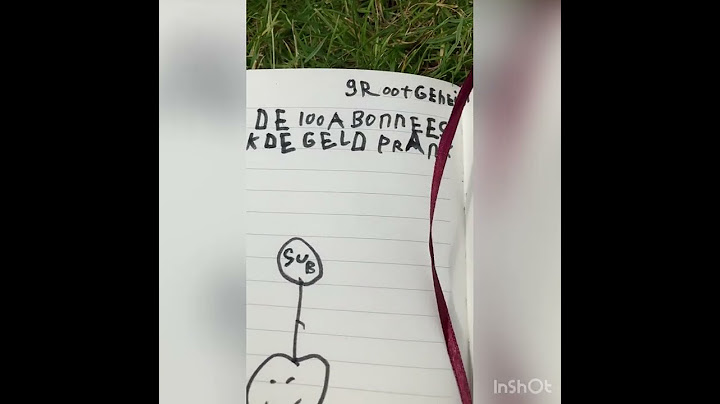 gRootGEhei
DE 100 ABONNEES
K DE GELD PRANK
SUB
InShOt